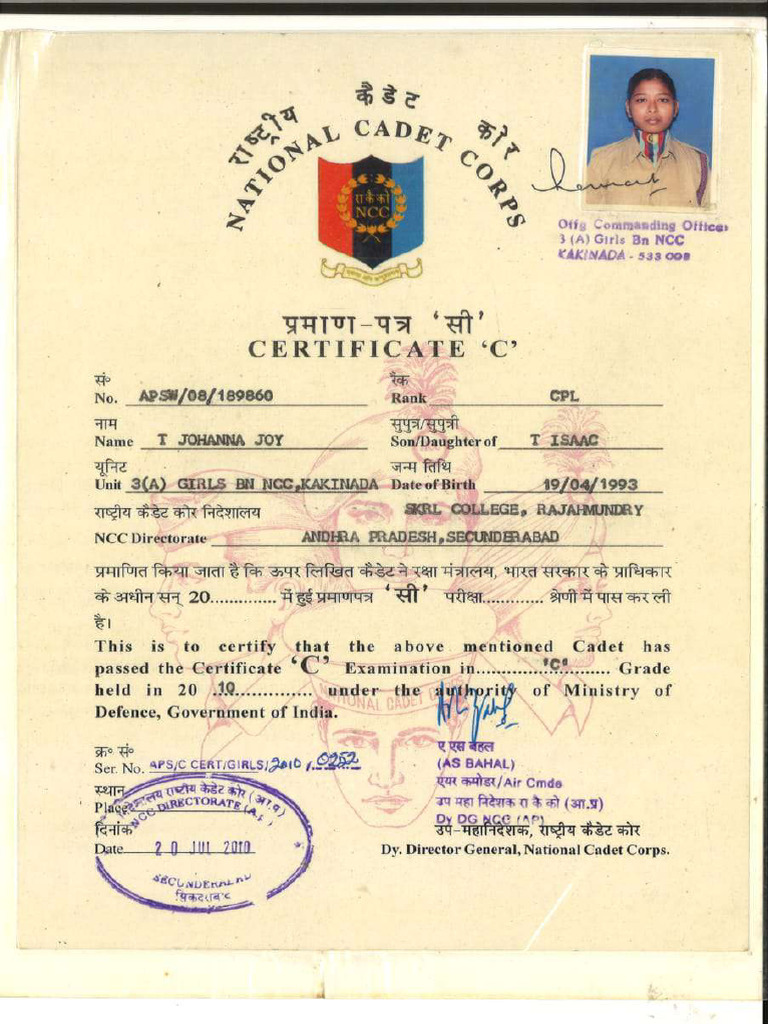 राष्ट्रीय कैडेट कोर
NATIONAL CADET CORPS
रा कै को
NCC
Offg Commanding Officer
3 (A) Girls Bn NCC
KAKINADA - 533 003
प्रमाण-पत्र 'सी'
CERTIFICATE 'C'
सं॰ रैंक
No. APSW/08/189860 Rank CPL
नाम सुपुत्र/सुपुत्री
Name T JOHANNA JOY Son/Daughter of T ISAAC
यूनिट जन्म तिथि
Unit 3(A) GIRLS BN NCC,KAKINADA Date of Birth 19/04/1993
राष्ट्रीय कैडेट कोर निदेशालय SKRL COLLEGE, RAJAHMUNDRY
NCC Directorate ANDHRA PRADESH,SECUNDERABAD
प्रमाणित किया जाता है कि ऊपर लिखित कैडेट ने रक्षा मंत्रालय, भारत सरकार के प्राधिकार
के अधीन सन् 20.............. में हुई प्रमाणपत्र 'सी' परीक्षा............. श्रेणी में पास कर ली
है।
This is to certify that the above mentioned Cadet has
passed the Certificate 'C' Examination in......'C'...... Grade
held in 20 .10............... under the authority of Ministry of
Defence, Government of India.
NATIONAL CADET
क्र॰ सं॰
Ser. No. APS/C CERT/GIRLS/2010/0252
ए एस बहल
(AS BAHAL)
एयर कमोडर/Air Cmde
उप महा निदेशक रा कै को (आ.प्र)
Dy DG NCC (AP)
स्थान
Place
दिनांक
Date 20 JUL 2010
निदेशालय राष्ट्रीय कैडेट कोर (आ.प्र)
NCC DIRECTORATE (A.P)
SECUNDERABAD
सिकंदराबाद
उप-महानिदेशक, राष्ट्रीय कैडेट कोर
Dy. Director General, National Cadet Corps.